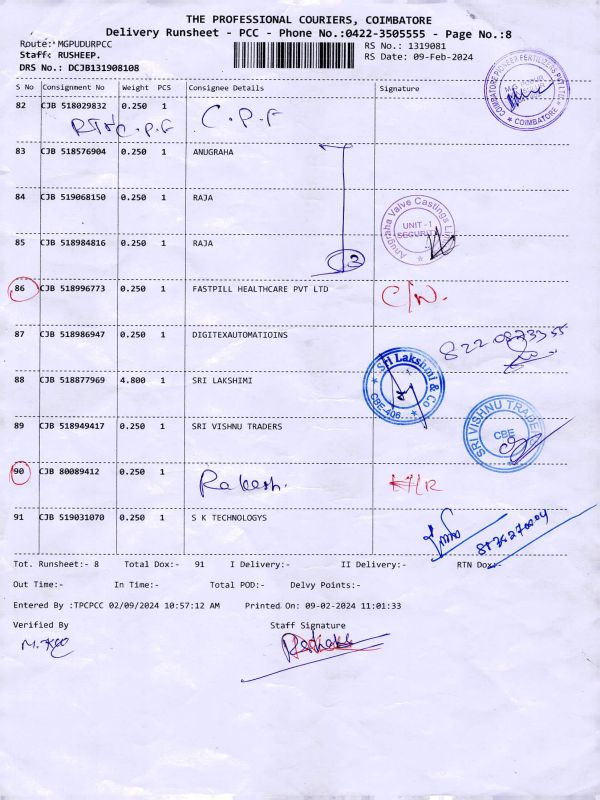 THE PROFESSIONAL COURIERS, COIMBATORE
Delivery Runsheet - PCC - Phone No.:0422-3505555 - Page No.:8
Route: MGPUDURPCC
RS No.: 1319081
Staff: RUSHEEP.
RS Date: 09-Feb-2024
DRS No.: DCJB131908108
S No Consignment No Weight PCS Consignee Details Signature
82 CJB 518029832 0.250 1 C.P.F
C.P.F
83 CJB 518576904 0.250 1 ANUGRAHA
84 CJB 519068150 0.250 1 RAJA
85 CJB 518984816 0.250 1 RAJA
3
86 CJB 518996773 0.250 1 FASTPILL HEALTHCARE PVT LTD C/N.
87 CJB 518986947 0.250 1 DIGITEXAUTOMATIOINS
88 CJB 518877969 4.800 1 SRI LAKSHIMI
89 CJB 518949417 0.250 1 SRI VISHNU TRADERS
90 CJB 80089412 0.250 1 Rakesh.
91 CJB 519031070 0.250 1 S K TECHNOLOGYS
COIMBATORE PIONEER FERTILIZERS PVT LTD
COIMBATORE
Anugraha Valve Castings
UNIT - 1
SECURITY
Sri Lakshmi & Co
CBE-406.
SRI VISHNU TRADERS
CBE
Tot. Runsheet:- 8 Total Dox:- 91 I Delivery:- II Delivery:- RTN Dox:-
Out Time:- In Time:- Total POD:- Delvy Points:-
Entered By :TPCPCC 02/09/2024 10:57:12 AM Printed On: 09-02-2024 11:01:33
Verified By Staff Signature